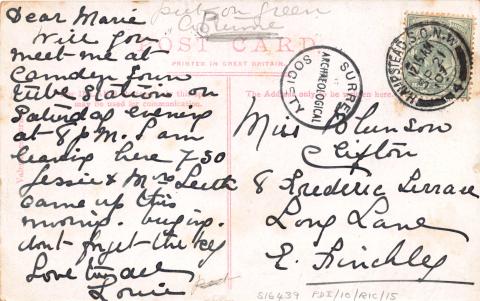 Dear Marie
Will you
meet me at
Camden Town
tube station on
Saturday evening
at 8 p.m. I am
leaving here 7-30
Jessie & Mrs Leith
came up this
morning.
dont forget the key
Love to all
Louie
put on green
POST CARD
PRINTED IN GREAT BRITAIN.
may be used for communication.
The Address only to be written here.
SURREY
ARCHAEOLOGICAL
SOCIETY
HAMPSTEAD S.O. N.W.
Miss Blunson
Clifton
8 Frederic Terrace
Long Lane
E. Finchley
S16439 PDI/10/RIC/15